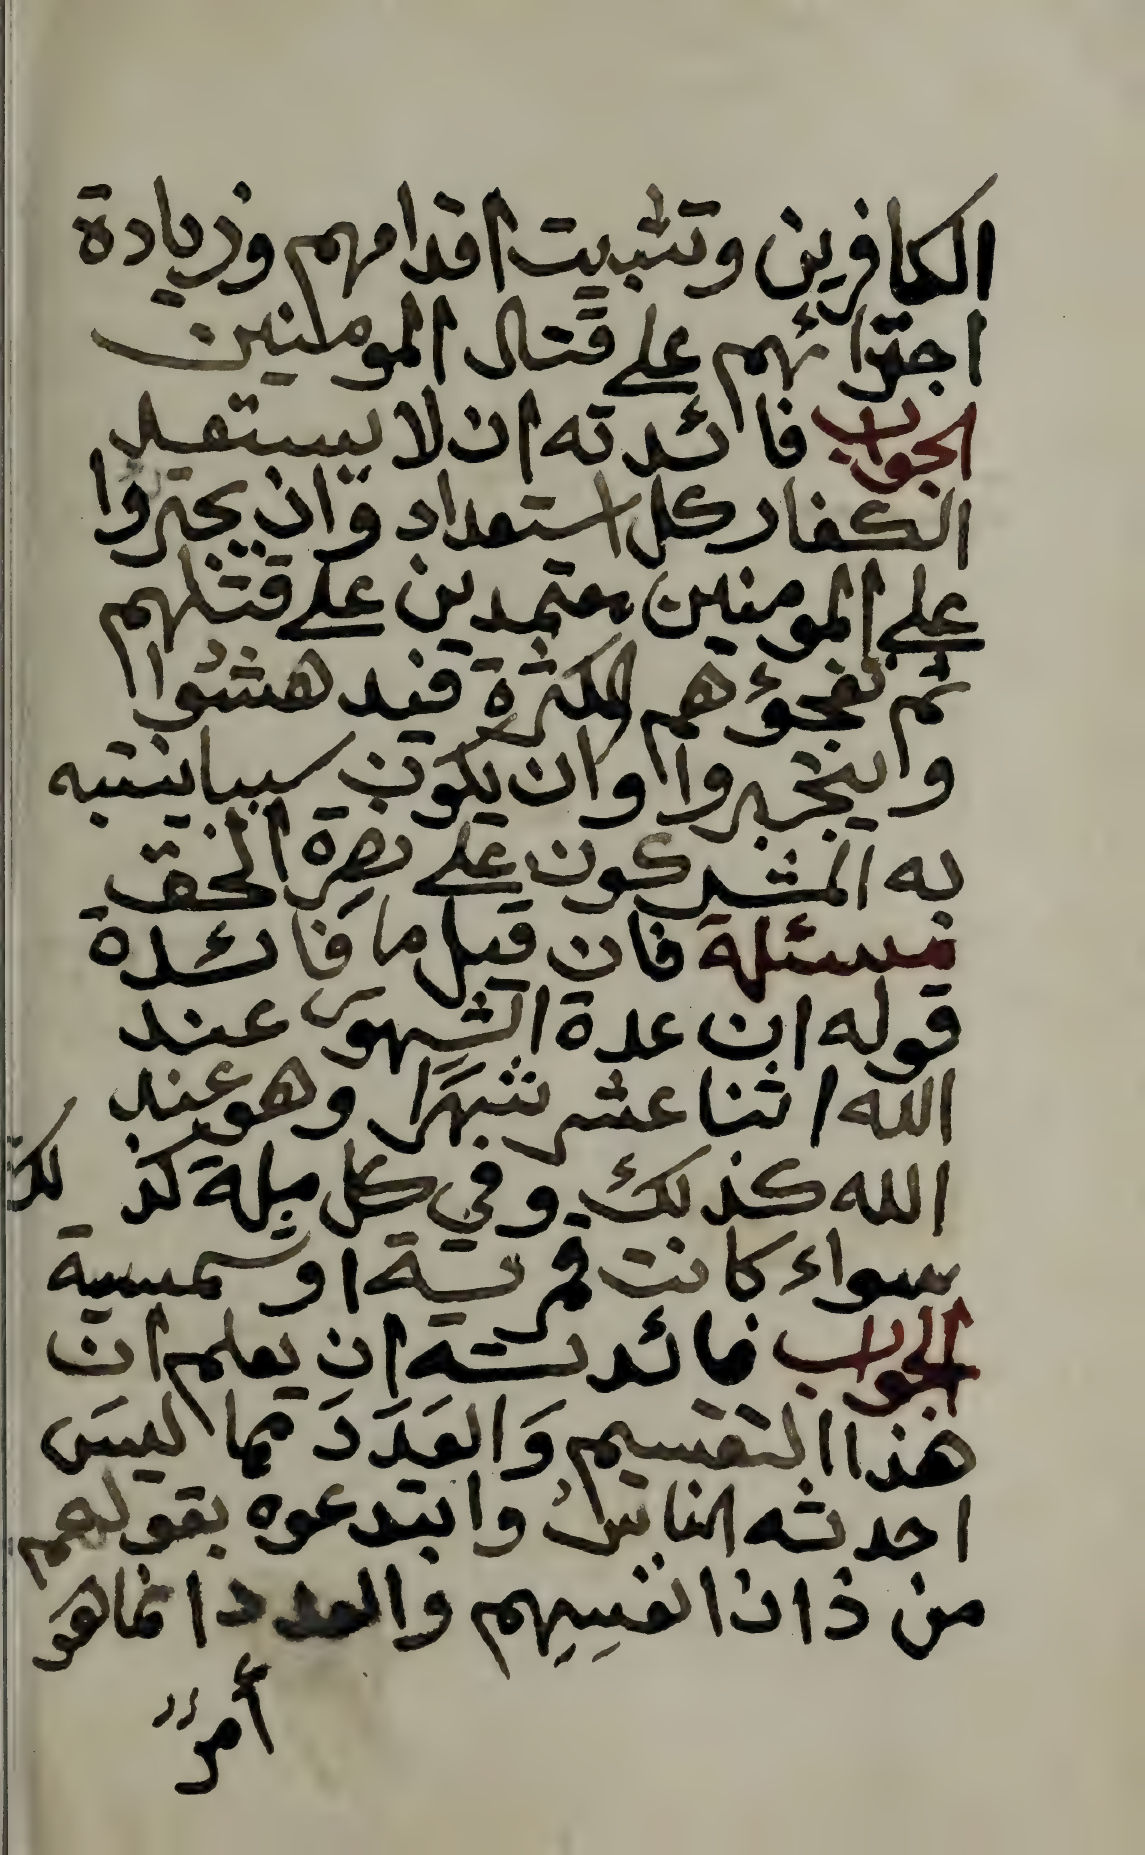 الكافرين وتثبيت اقدامهم وزيادة
اجترائهم علي قتال المومنين
الجواب فائدته ان لا يستعد
الكفار كل استعداد وان يجتروا
علي المومنين معتمدين علي قتلهم
ثم تفجؤهم الكثرة فيدهشوا
وينخبروا وان يكون سببا ينتبه
به المشركون علي نصرة الحق
مسئلة فان قيل ما فائدة
قوله ان عدة الشهور عند
الله اثنا عشر شهرا وهو عند
الله كذلك وفي كل ملة كذلك
سواء كانت قمرية او شمسية
الجواب فائدته ان يعلم ان
هذا التقسيم والعدد مما ليس
احدثه الناس وابتدعوه بقولهم
من ذات انفسهم والعدد انما هو
أمر